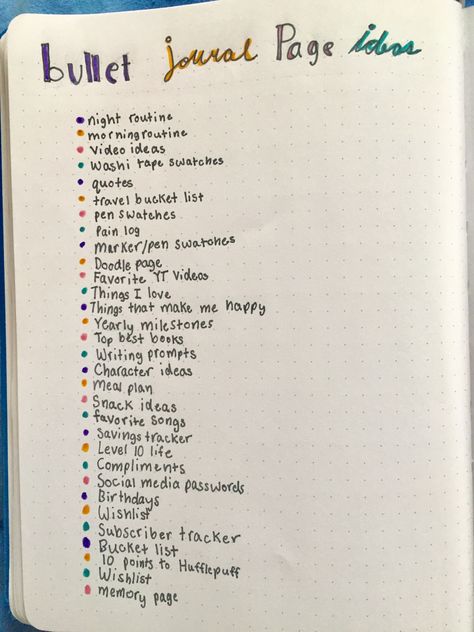 bullet joural Page ideas
night routine
morning routine
Video ideas
Washi tape swatches
quotes
travel bucket list
pen swatches
Pain log
Marker/pen swatches
Doodle page
Favorite YT Videos
Things I love
Things that make me happy
Yearly milestones
Top best books
Writing prompts
Character ideas
Meal plan
Snack ideas
favorite songs
Savings tracker
Level 10 life
Compliments
Social media passwords
Birthdays
Wishlist
Subscriber tracker
Bucket list
10 points to Hufflepuff
Wishlist
memory page